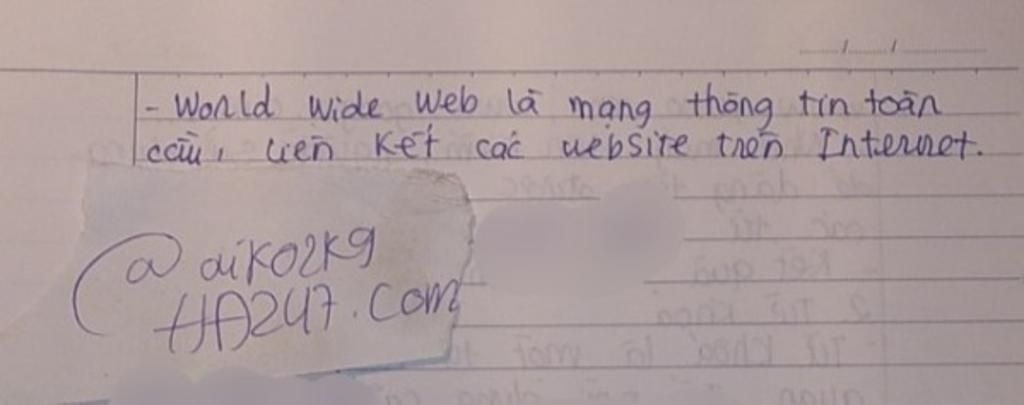 - World Wide Web là mạng thông tin toàn
cầu, liên kết các website trên Internet.
@aiko2k9
HA247.com